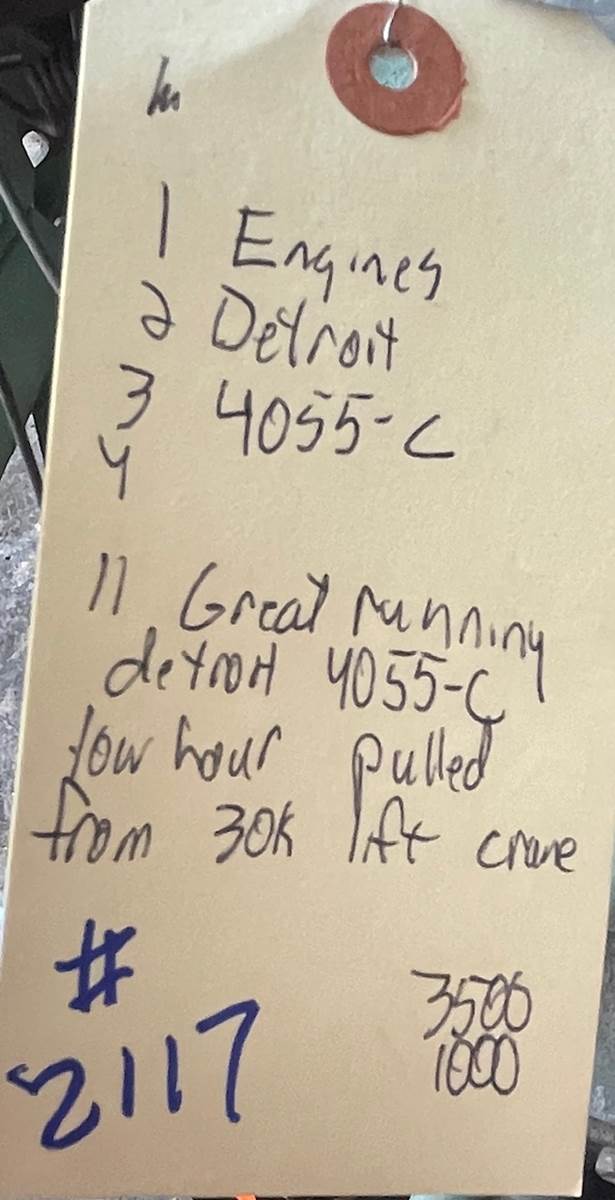 1 Engines
2 Detroit
3 4055-C
4
11 Great running
detroit 4055-C
low hour pulled
from 30K lift crane
#
2117
3500
1000